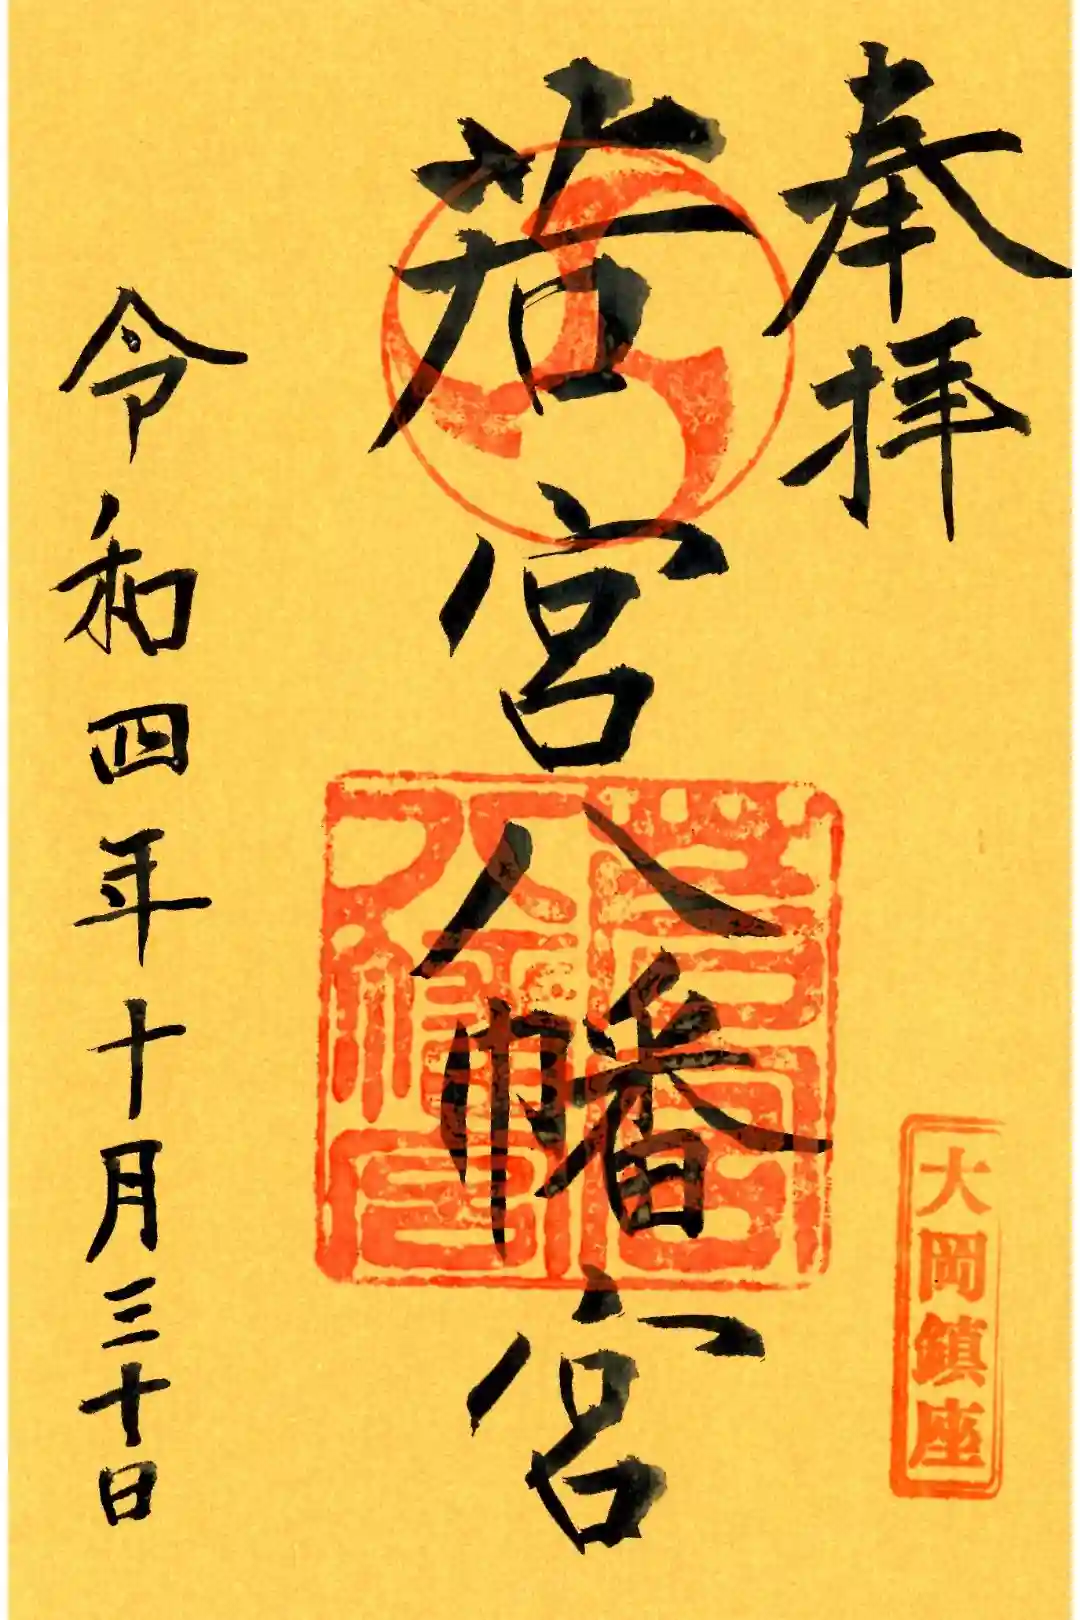 奉拝
大岡鎮座
若宮八幡宮
若宮八幡宮
令和四年十月三十日